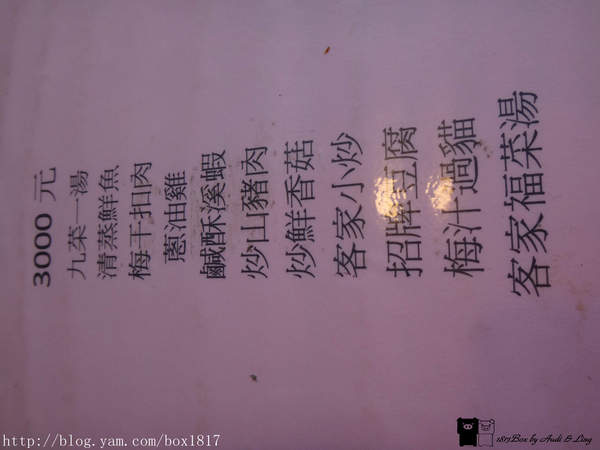 3000 元
九菜一湯
清蒸鮮魚
梅干扣肉
蔥油雞
鹹酥溪蝦
炒山豬肉
炒鮮香菇
客家小炒
招牌豆腐
梅汁過貓
客家福菜湯
http://blog.yam.com/box1817
1817Box by Audi & Ling